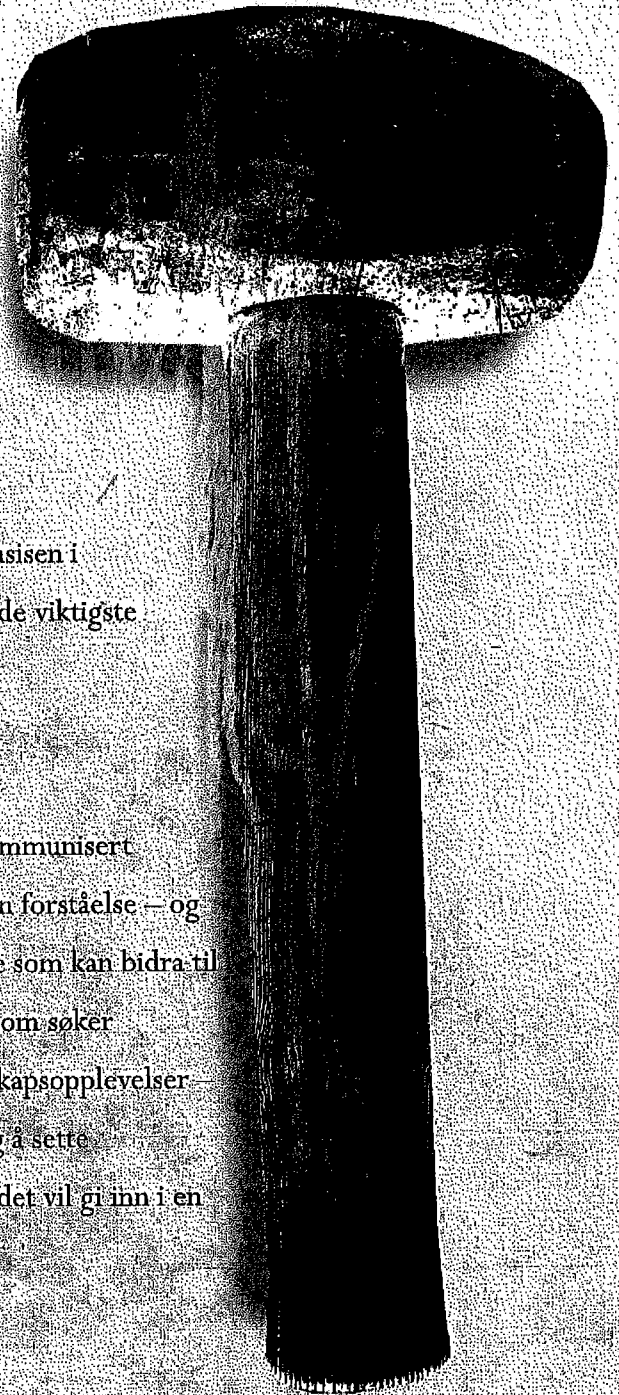 asisen i
de viktigste
mmunisert
n forståelse – og
e som kan bidra til
om søker
kapsopplevelser –
g å sette
det vil gi inn i en